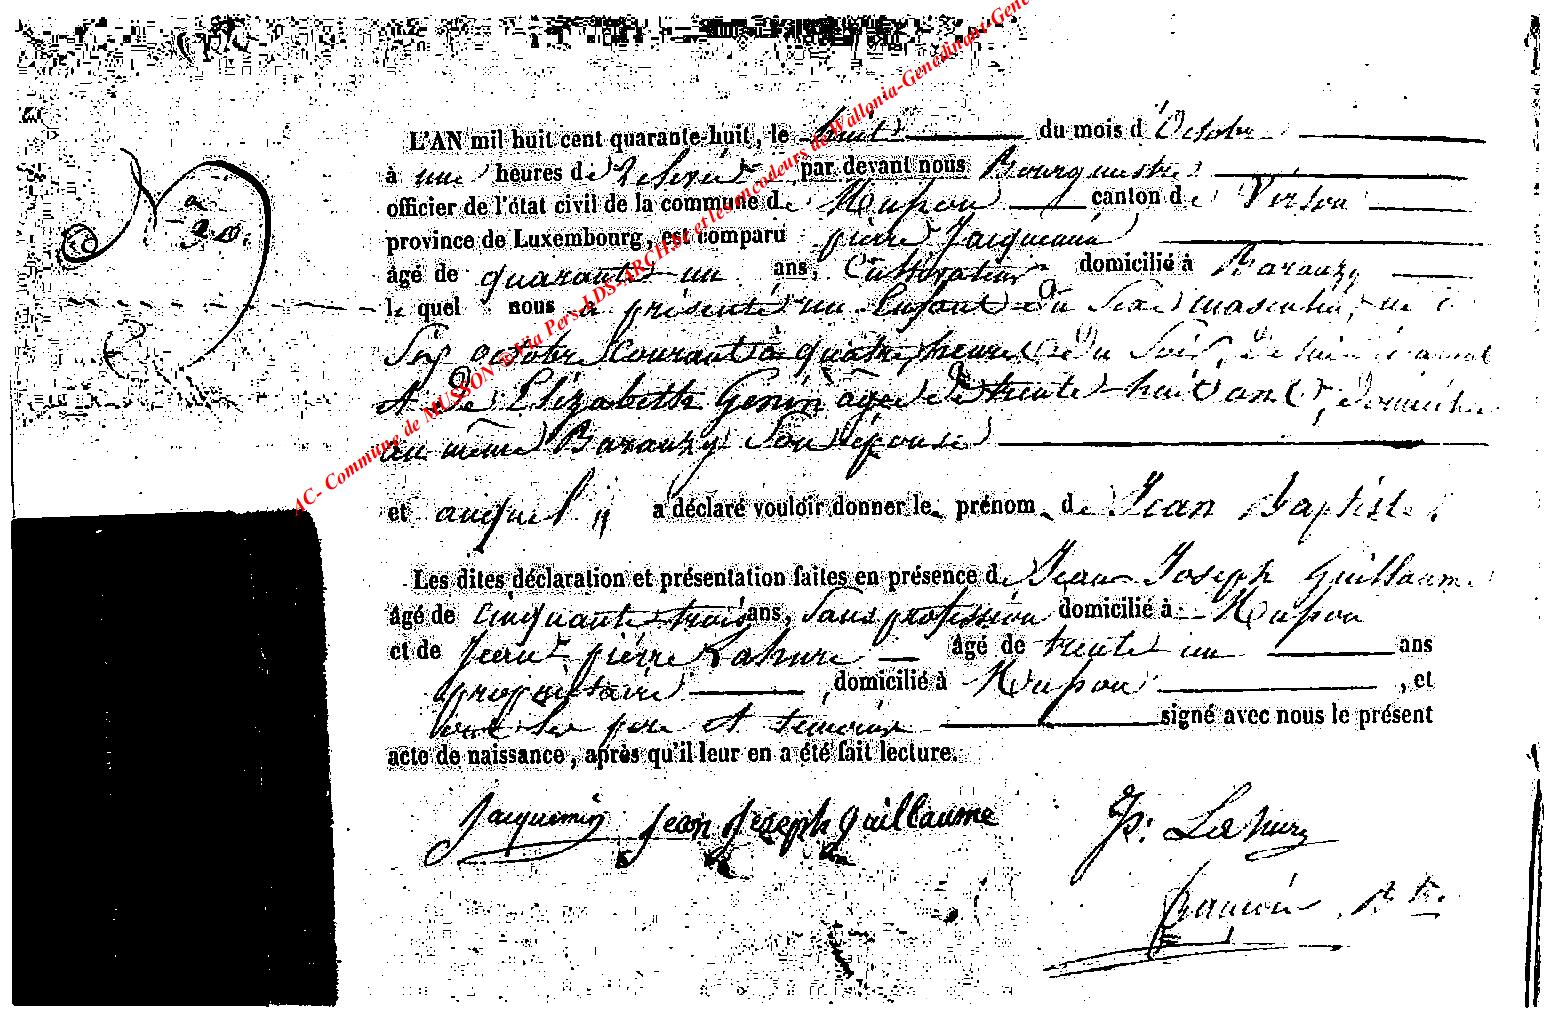 L'AN mil huit cent quarante huit, le huit du mois d'Octobre
à une heures de relevée par devant nous Bourguestre
officier de l'état civil de la commune de Musson canton de Virton
province de Luxembourg, est comparu pierre Jacquemin
âgé de quarante un ans, Cultivateur domicilié à Baranzy
le quel nous a présenté un Enfant du Sexe masculin, né le
Sep octobre courant à quatre heures du Soir, de lui déclarant
et de Elizabeth Genin agée de trente huit ans, domiciliée
au même Baranzy Son épouse
et auquel il a déclaré vouloir donner le prénom de Jean Baptiste.
Les dites déclaration et présentation faites en présence de Jean Joseph Guillaume
âgé de cinquante trois ans, Sans profession domicilié à Musson
et de Jean pierre Lahure âgé de trente un ans
propriétaire, domicilié à Musson, et
ont les père et témoins signé avec nous le présent
acte de naissance, après qu'il leur en a été fait lecture.
Jacquemin Jean Joseph Guillaume Jp: Lahure
AC- Commune de MUSSON © Via Pers-J DS-ARCH.be et les encodeurs de Wallonia-Genedinant-Gene